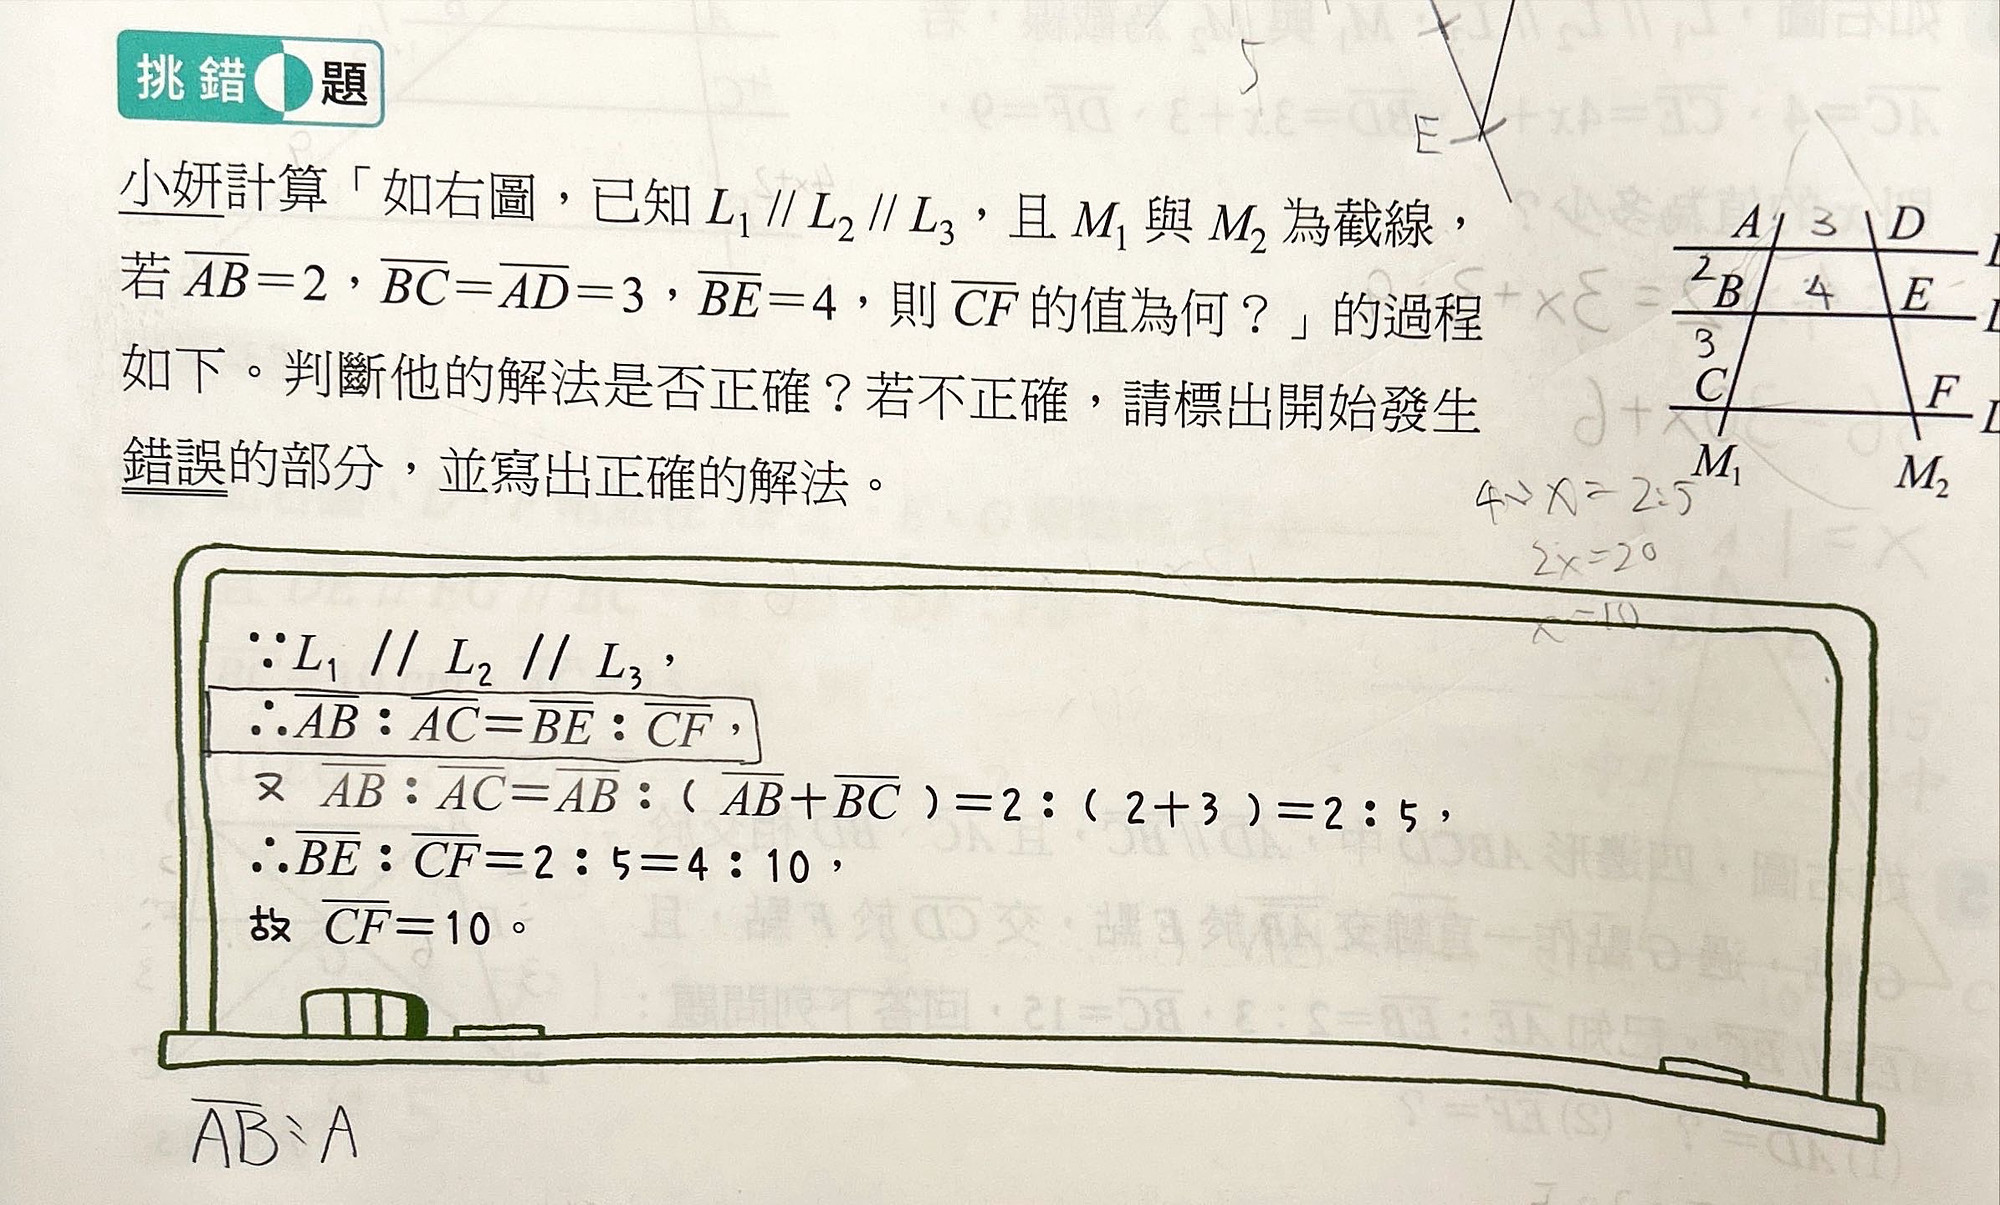 挑錯題
5
E
小妍計算「如右圖，已知 L₁ // L₂ // L₃，且 M₁ 與 M₂ 為截線，
若 AB=2，BC=AD=3，BE=4，則 CF 的值為何？」的過程
如下。判斷他的解法是否正確？若不正確，請標出開始發生
錯誤的部分，並寫出正確的解法。
A 3 D
2 B 4 E
3
C F
M₁ M₂
4:x=2:5
2x=20
x=10
∵L₁ // L₂ // L₃，
∴AB：AC=BE：CF，
又 AB：AC=AB：(AB+BC)=2：(2+3)=2：5，
∴BE：CF=2：5=4：10，
故 CF=10。
AB:A